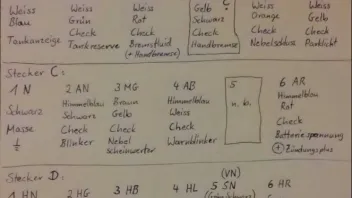 Weiss Weiss Weiss Gelb C Weiss Gelb
Blau Grün Rot Schwarz Orange Weiss
Check Check Check Check Check
Tankanzeige Tankreserve Bremsfluid Handbremse Nebelschluss Parklicht
(+Handbremse)
Stecker C:
1 N 2 AN 3 MG 4 AB 5 6 AR
Himmelblau Braun Himmelblau n. b. Himmelblau
Schwarz Schwarz Gelb Weiss Rot
Masse Check Check Check Check
Blinker Nebel Warnblinker Batteriespannung
scheinwerfer + Zündungsplus
Stecker D:
(VN)
1 HN 2 HG 3 HB 4 HL 5 SN 6 HR